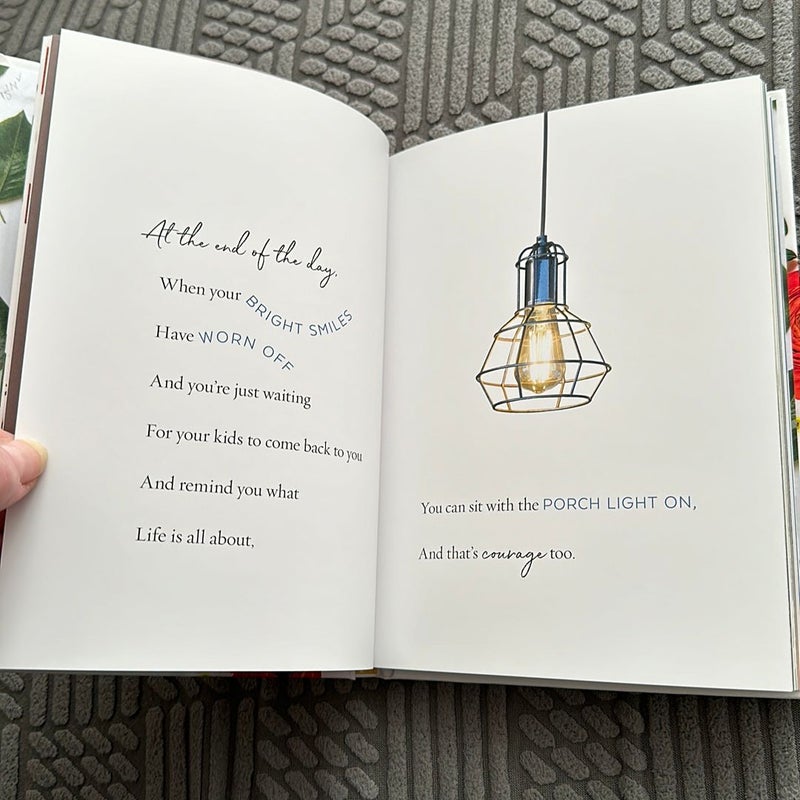 At the end of the day,
When your BRIGHT SMILES
Have WORN OFF
And you're just waiting
For your kids to come back to you
And remind you what
Life is all about,
You can sit with the PORCH LIGHT ON,
And that's courage too.